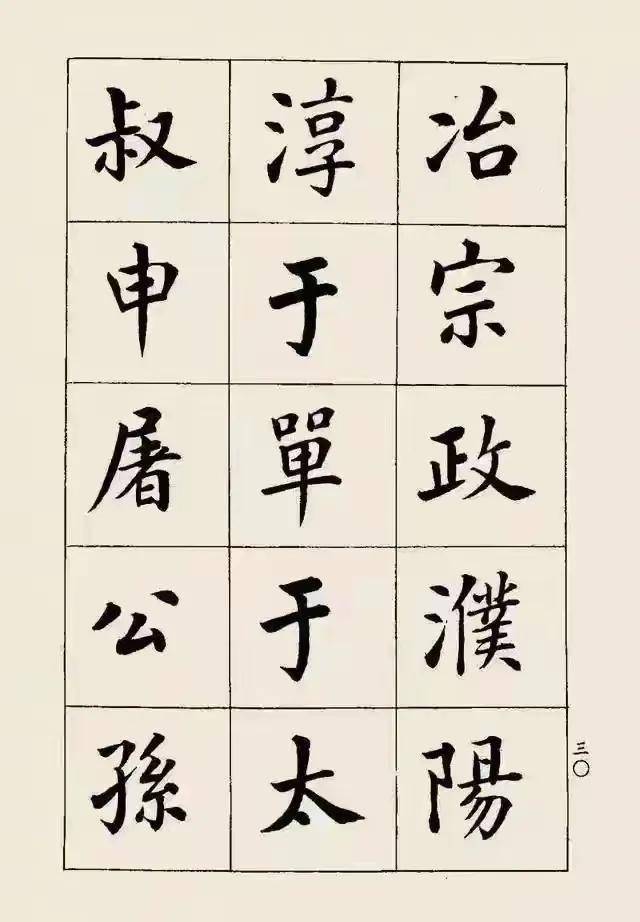 冶宗政濮陽
淳于單于太
叔申屠公孫
三〇